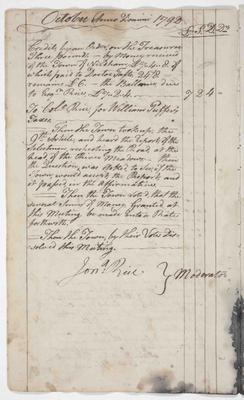 October Anno Domini 1782
£ S D Drs
Credit, upon Order, on the Treasurer
Three Pounds — by Money received
of the Town of Needham,
which paid to Doctor
remains £6 — the Ballance due
to Rice
7 2 4
To Colo. Rice, for William
Taxes.
Then the Town took up, the
9th Article, and heard the Report of the
Selectmen, respecting the Road at the
head of the three Meadows — then
the Question, was put, to see if the
Town, would accept the Report, and
it passed, in the Affirmative.
Upon the Town voted, that the
several Sums of Money Granted at
this Meeting be made into a Rate
forthwith.
Then the Town, by their Vote Dis-
solved this Meeting.
Jona. Rice } Moderator